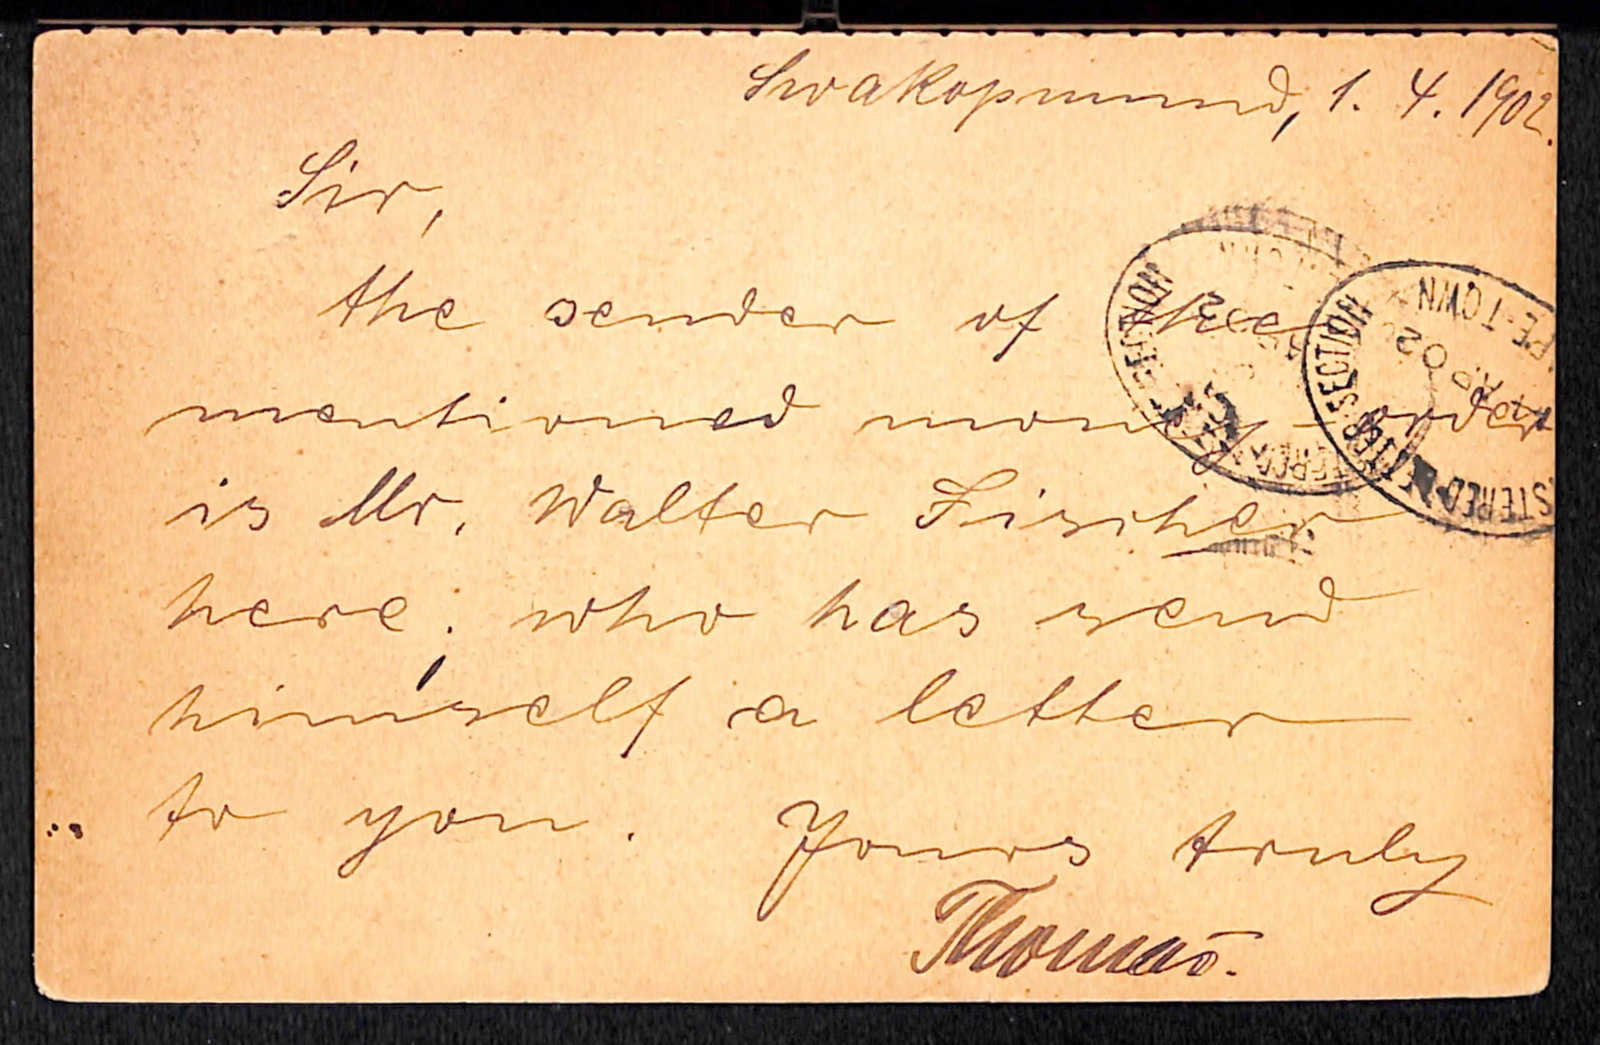 Swakopmund, 1. 4. 1902.
Sir,
the sender of the
mentioned money-order
is Mr. Walter Fischer
here, who has send
himself a letter
to you. Yours truly
Thomas.
SECTION
SECTION
TOWN
AP 02